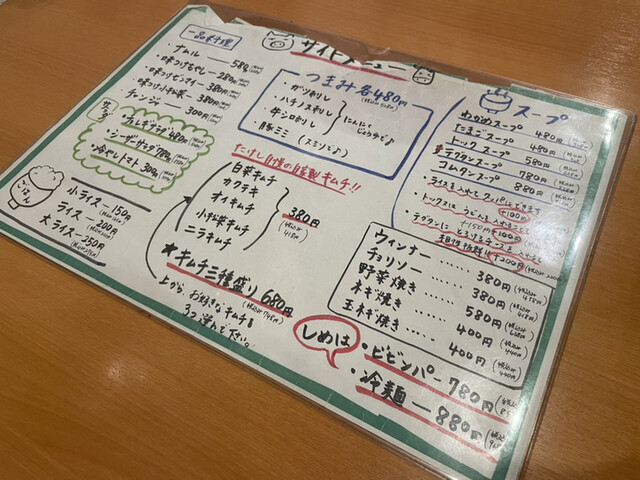 サイドメニュー
一品料理
・ナムル — 580
・味つけもやし — 280円
・味つけゼンマイ — 380円
・味つけ小松菜 — 380円
・チャンジャ — 300円
サラダ
・チョレギサラダ 480円
・シーザーサラダ 780円
・冷やしトマト 300円
ごはん
小ライス — 150円
ライス — 200円
大ライス — 250円
つまみ各480円
・ガツ刺し
・ハチノス刺し
・牛シロ刺し
・豚ミミ
たけし自慢の自家製キムチ!!
白菜キムチ
カクテキ
オイキムチ
小松菜キムチ
ニラキムチ
380円
(税込418円)
★キムチ三種盛り 680円
(税込748円)
上から、お好きなキムチを
3つ選んで下さい
スープ
わかめスープ 480円
たまごスープ 480円
トックスープ 580円
テグタンスープ 780円
コムタンスープ 880円
ライスを入れてクッパにできます
+100円
ウィンナー …… 380円
チョリソー …… 380円
野菜焼き …… 580円
ネギ焼き …… 400円
玉ネギ焼き …… 400円
しめは
・ビビンバ — 780円
・冷麺 — 880円